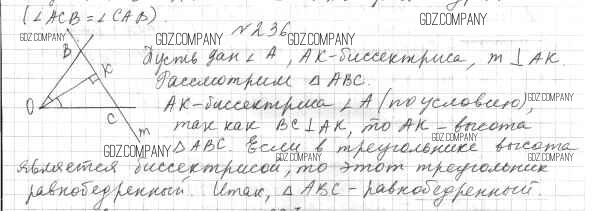 (∠ACB = ∠CAB).
№236
GDZ.COMPANY
GDZ.COMPANY GDZ.COMPANY GDZ.COMPANY
Пусть дан ∠A, AK-биссектриса, m ⊥ AK.
Рассмотрим △ABC.
AK-биссектриса ∠A (по условию), GDZ.COMPANY
так как BC ⊥ AK, то AK - высота
GDZ.COMPANY
△ABC. Если в треугольнике высота
GDZ.COMPANY GDZ.COMPANY GDZ.COMPANY
является биссектрисой, то этот треугольник
равнобедренный. Итак, △ABC - равнобедренный.
B
K
O
C
m